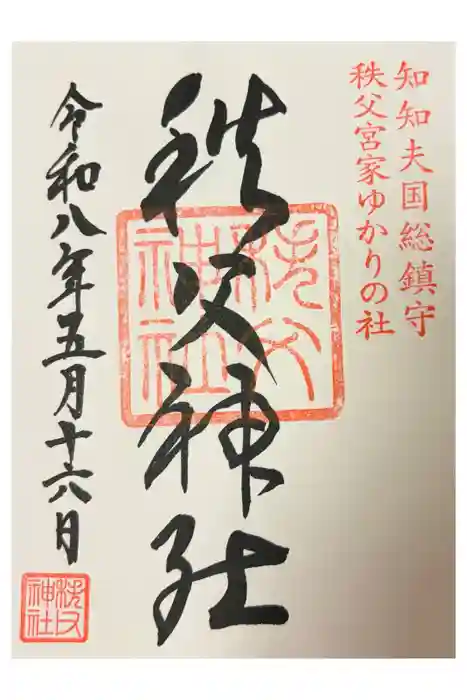 知知夫国総鎮守
秩父宮家ゆかりの社
秩父神社
秩父
神社
令和八年五月十六日
秩父
神社